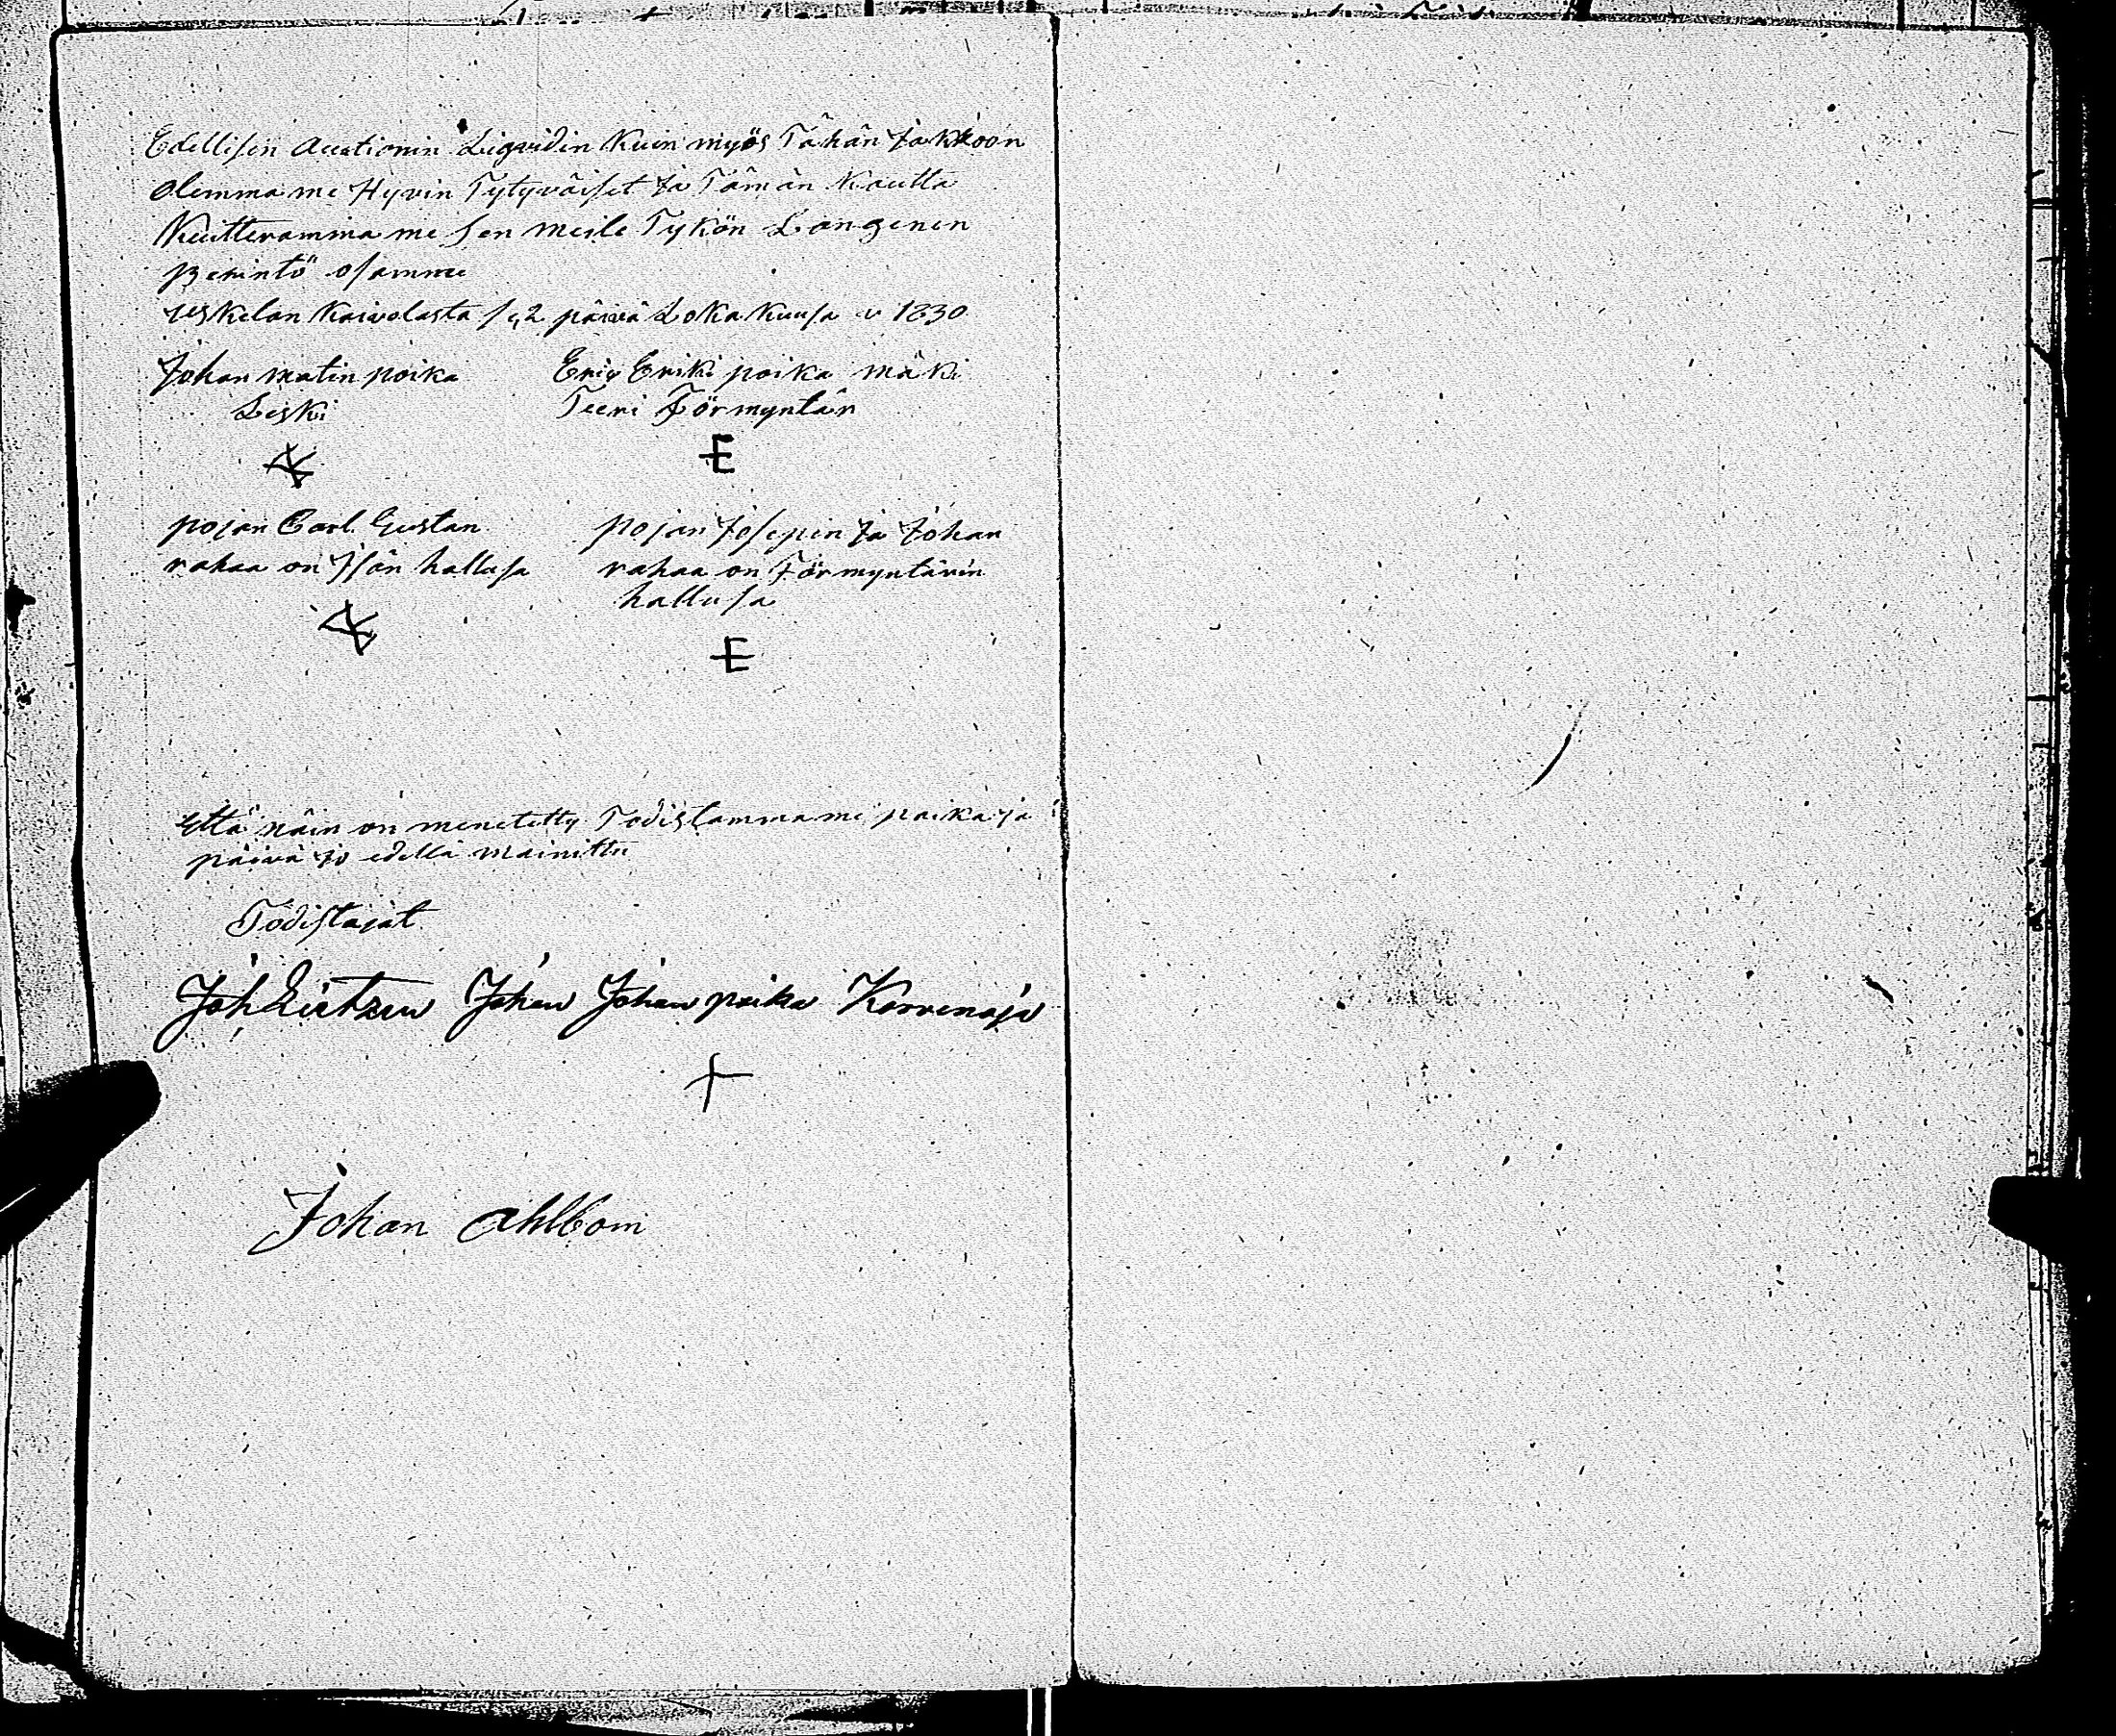 Edellisen Auctionin Liqvidin Kuin myös Tähän Jakkoon
olemma me Hyvin Tytyväiset Ja Tämän Kautta
Kuitteramma me sen meile Tykön Langenen
Perintö osamme
Uskelan Kaivolasta se 2 päivä Loka Kuusa v 1830
Johan matin poika
Leski
Eriq Eriki poika mäki
Teeri Förmyntär
E
pojan Carl Gustan
rahaa on Isän hallusa
pojan Josepin Ja Johan
rahaa on Förmyntärin
hallusa
E
Että näin on menetetty Todistamma me paika ja
päivä jo edellä mainittu
Todistajat
Joh Johan Johan poika Korvenoja
Johan Ahlbom